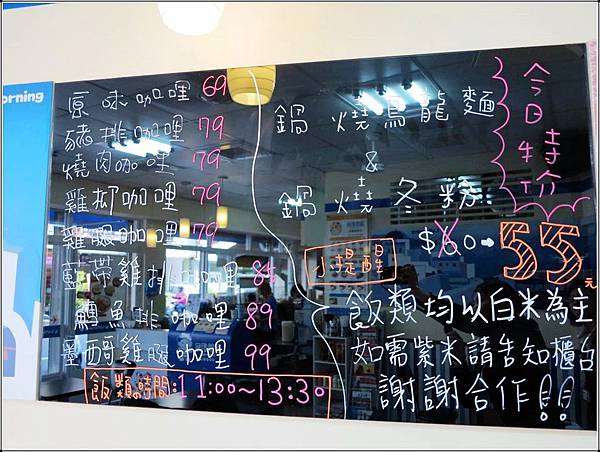 orning
原味咖哩 69
豬排咖哩 79
燒肉咖哩 79
雞柳咖哩 79
雞腿咖哩 79
藍帶雞排咖哩 84
鱈魚排咖哩 89
墨西哥雞腿咖哩 99
飯類時間:11:00~13:30
鍋燒烏龍麵
&
鍋燒冬粉
今日特價
$60→55元
小提醒
飯類均以白米為主
如需紫米請告知櫃台
謝謝合作!!